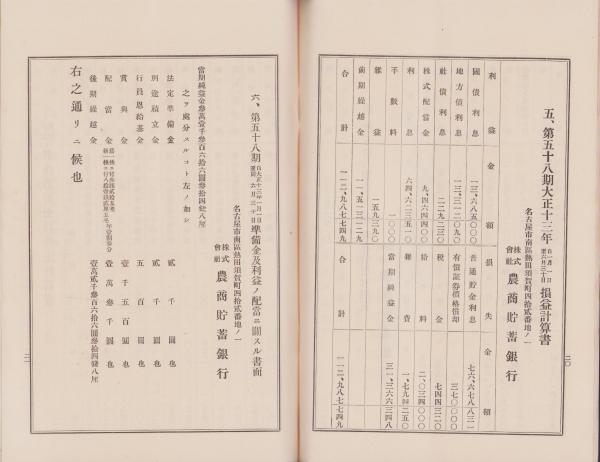 五、第五十八期大正十三年 自一月一日 至六月三十日 損益計算書
名古屋市南區熱田須賀町四拾貳番地ノ一
株式會社 農商貯蓄銀行
利益 金額 損失 金額
國債利息 一三、六八五〇〇〇 普通貯金利息 七六、六七八八三一
地方債利息 一三、三二〇九〇 有價証券價格償却 三七〇〇〇〇
社債利息 二二九二三〇 税金 七四四三二〇
株式配當金 九、四六四〇〇 給料 二、〇三四〇〇〇
利息 六四、六二三五一〇 雜費 一、七九四二五〇
手數料 一〇〇〇 當期純益金 三一、三六六三四八
雜益 一五九三九〇
前期繰越金 一一、五一三一二九
合計 一一二、九八七七四九 合計 一一二、九八七七四九
二〇
六、第五十八期 自大正十三年一月一日 至同年六月三十日 準備金及利益ノ配當ニ關スル書面
名古屋市南區熱田須賀町四拾貳番地ノ一
株式會社 農商貯蓄銀行
當期純益金參萬壹千參百六拾六圓參拾四錢八厘
之ヲ處分スルコト左ノ如シ
法定準備金 貳千圓也
別途積立金 貳千圓也
行員恩給基金 五百圓也
賞與金 壹千五百圓也
配當金 壹萬參千圓也
後期繰越金 壹萬貳千參百六拾六圓參拾四錢八厘
右之通リニ候也
二一